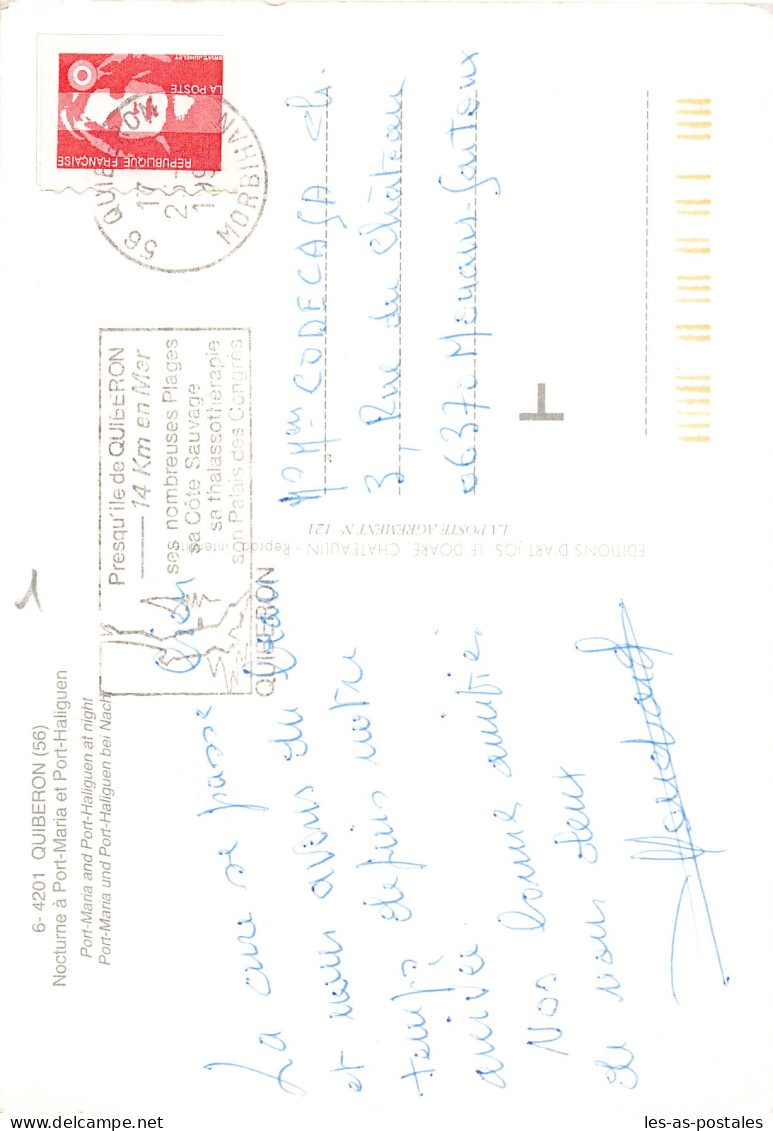 6- 4201 QUIBERON (56)
Nocturne à Port-Maria et Port-Haliguen
Port-Maria and Port-Haliguen at night
Port-Maria und Port-Haliguen bei Nacht
1
La cure se passe bien
et nous avons du beau
temps depuis notre
arrivée.
Nos bonne amitiés
de nous deux
EDITIONS D'ART JOS LE DOARE, CHATEAULIN - Reprod. interdite
LA POSTE AGREMENT N° 121
Presqu'île de QUIBERON
14 Km en Mer
ses nombreuses Plages
sa Côte Sauvage
sa thalassothérapie
son Palais des Congrès
QUIBERON
56 QUIBERON
17
2
19
MORBIHAN
REPUBLIQUE FRANÇAISE
LA POSTE
BRIAT-JUMELET
Mr Mme CODECASA Ch.
3, Rue du Château
06370 Mouans-Sartoux
les-as-postales